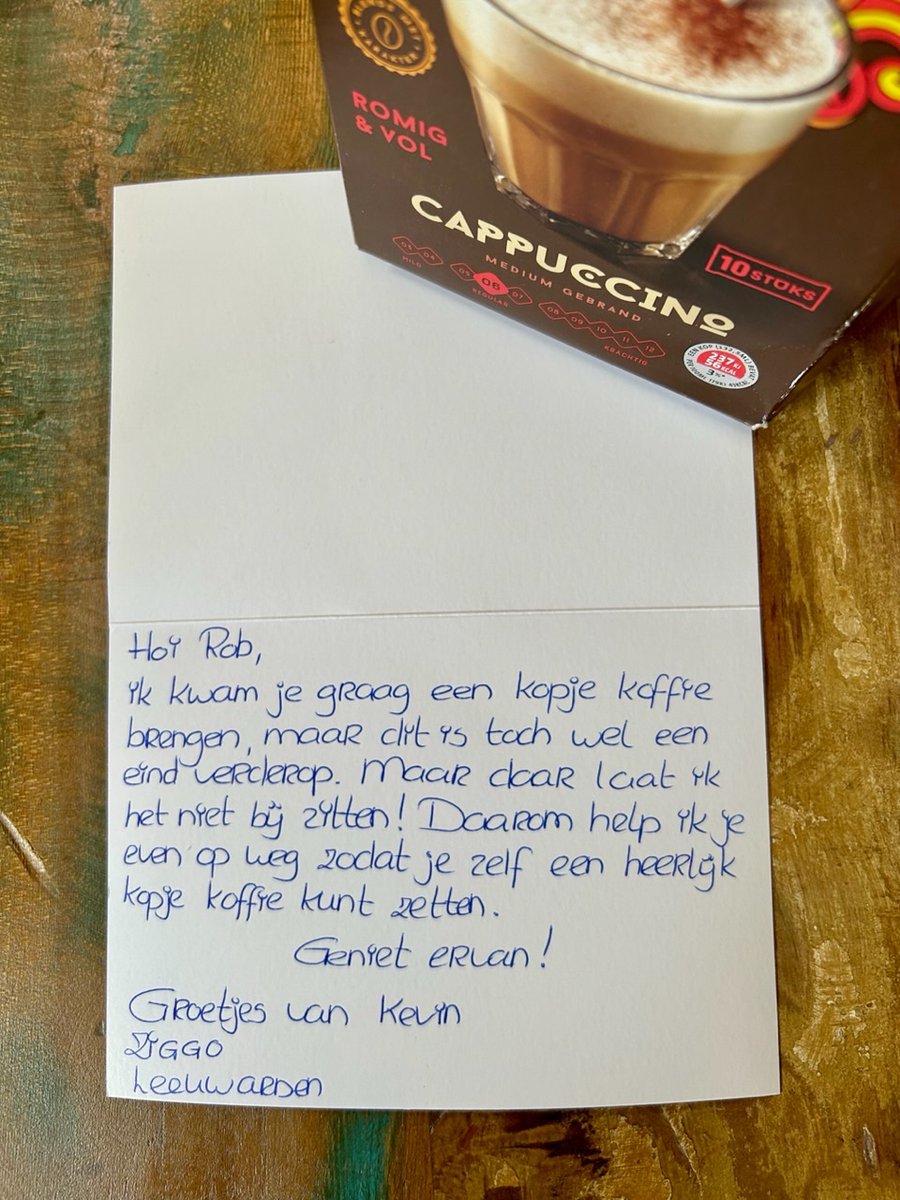 ROMIG
& VOL
CAPPUCCINO
MEDIUM GEBRAND
10 STUKS
03 04
MILD
05 06 07
REGULAR
08 09 10 11 12
KRACHTIG
237 KJ
56 KCAL
3%*
Hoi Rob,
ik kwam je graag een kopje koffie
brengen, maar dit is toch wel een
eind verderop. Maar daar laat ik
het niet bij zitten! Daarom help ik je
even op weg zodat je zelf een heerlijk
kopje koffie kunt zetten.
Geniet ervan!
Groetjes van Kevin
ZIGGO
Leeuwarden